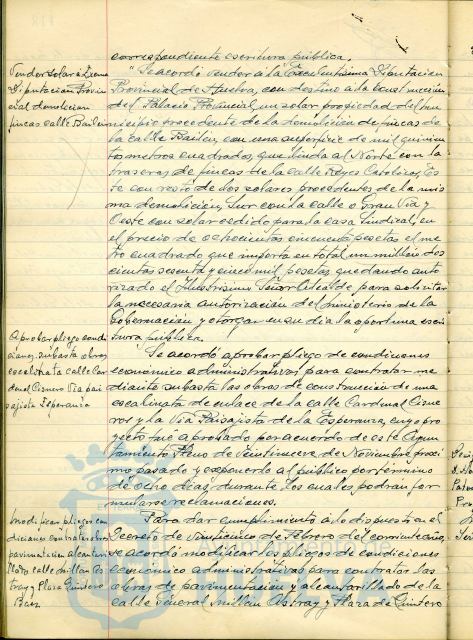 correspondiente escritura pública.
Vender solar a Excma
Diputación Provin
cial demolición
fincas calle Bailén
Se acordó vender a la Excelentísima Diputación
Provincial de Huelva, con destino a la construcción
del Palacio Provincial, un solar propiedad del Mu
nicipio procedente de la demolición de fincas de
la calle Bailén, con una superficie de mil quinien
tos metros cuadrados, que linda al Norte con la
traseras de fincas de la calle Reyes Católicos, Es
te con resto de dos solares procedentes de la mis
ma demolición, Sur con la calle o Gran Vía y
Oeste con solar cedido para la casa Sindical, en
el precio de ochocientas cincuenta pesetas el me
tro cuadrado que importa en total un millón dos
cientas sesenta y cinco mil pesetas, quedando auto
rizado el Ilustrísimo Señor Alcalde para solicitar
la necesaria autorización del Ministerio de la
Gobernación y otorgar en su día la oportuna escri
tura pública.
Aprobar pliego condi
ciones subasta obras
escalinata calle Car
denal Cisneros Vía pai
sajista Esperanza
Se acordó aprobar pliego de condiciones
económico administrativas, para contratar me
diante subasta las obras de construcción de una
escalinata de enlace de la calle Cardenal Cisne
ros y la Vía Paisajista de la Esperanza, cuyo pro
yecto fue aprobado por acuerdo de este Ayun
tamiento Pleno de veintinueve de Noviembre próxi
mo pasado y exponerlo al público por término
de ocho días, durante los cuales podrán for
mularse reclamaciones.
Modificar pliegos con
diciones contratar obras
pavimentación alcantari
llado calle Millán As
tray y Plaza Quintero
Baez
Para dar cumplimiento a lo dispuesto en el
Decreto de veinticinco de Febrero del corriente año,
se acordó modificar los pliegos de condiciones
económico administrativas para contratar las
obras de pavimentación y alcantarillado de la
calle General Millán Astray y Plaza de Quintero